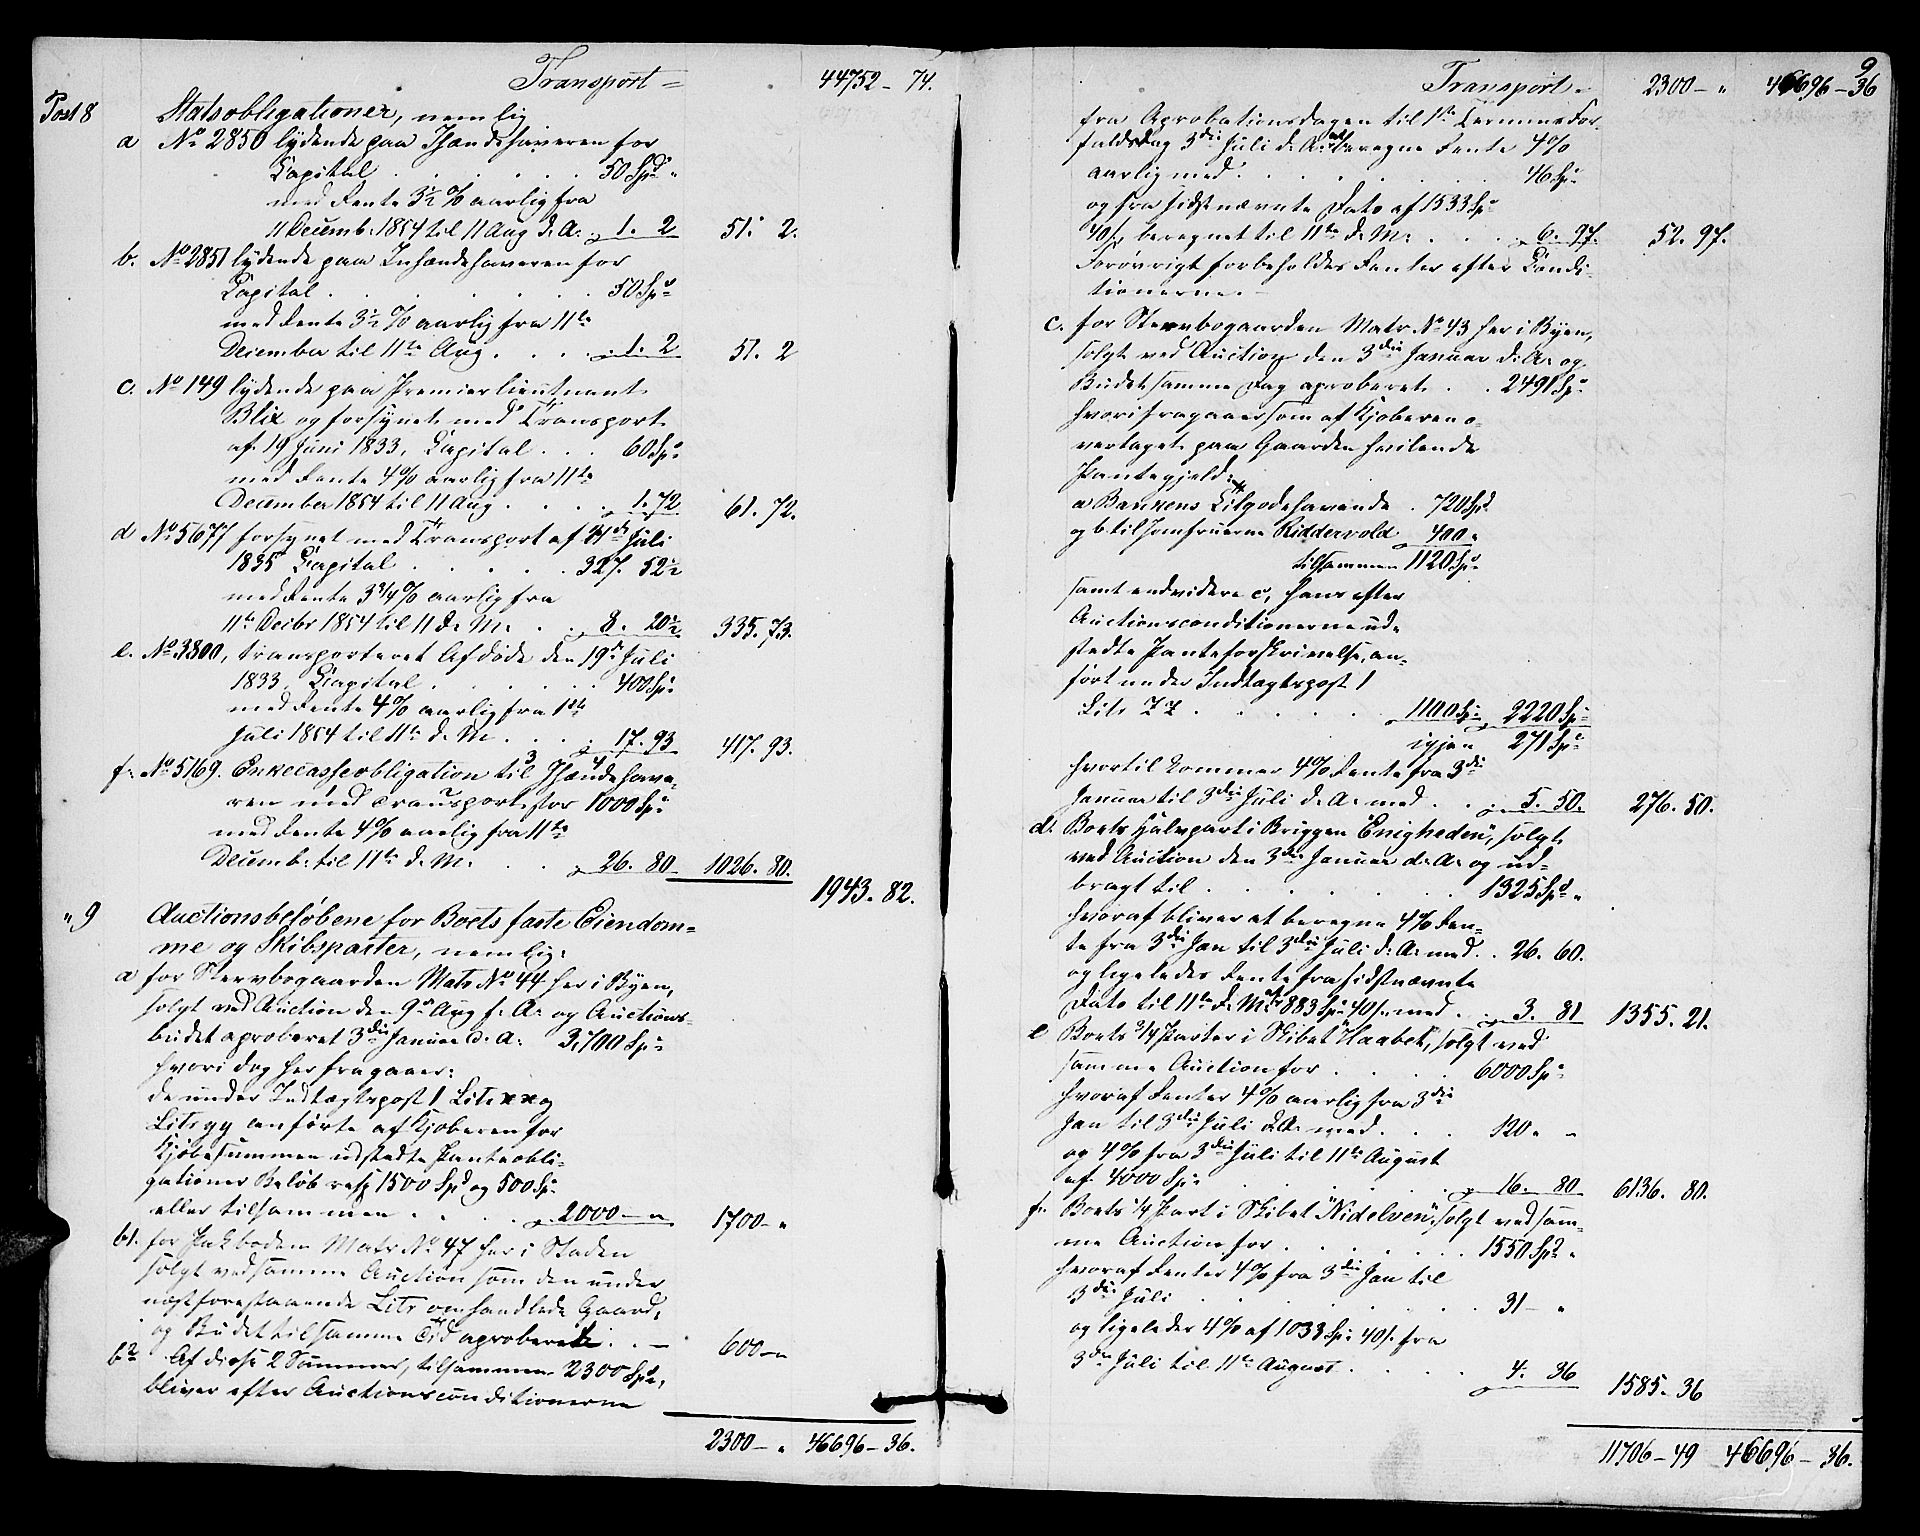 Transport = 44752 - 74.
Post 8 Statsobligationer, nemlig
a No 2850 lydende paa Ihændehaveren for
Capital . . . . . 50 Spd "
med Rente 3½ % aarlig fra
11 Decemb. 1854 til 11 Aug d. A. 1. 2 51. 2.
b. No 2851 lydende paa Inhændehaveren for
Capital . . . . . 50 Spd
med Rente 3½ % aarlig fra 11te
December til 11te Aug. . . . 1. 2 51. 2
c. No 149 lydende paa Premierlieutnant
Blix og forsynet med Transport
af 19 Juni 1833, Capital . . . 60 Spd
med Rente 4 % aarlig fra 11te
December 1854 til 11 Aug . . . . 1. 72 61. 72.
d No 5677 forsynet med Transport af Juli
1835 Capital . . . . . 327. 52½
med Rente 3¾ % aarlig fra
11te Decbr 1854 til 11 d. M. . . 8. 20½ 335. 73.
e. No 3800, transporteret Afdøde den 19de Juli
1833, Capital . . . . . 400 Spd
med Rente 4 % aarlig fra 1ste
Juli 1854 til 11te d. M. . . . 17. 93 417. 93.
f. No 5169. Enkecasseobligation til Ihændehave-
ren med Transport, stor 1000 Spd
med Rente 4 % aarlig fra 11te
Decemb. til 11te d. M. . . 26. 80 1026. 80.
1943. 82.
" 9 Auctionsbeløbene for Boets faste Eiendom-
me og Skibsparter, nemlig:
a for Stervbogaarden Matr No 44 her i Byen,
solgt ved Auction den 9de Aug f. A. og Auctions-
budet aproberet 3die Januar d. A. 3,700 Spd
hvori dog her fragaaer:
de under Indtægtspost 1 Litr xx og
Litr yy anførte af Kjøberen for
Kjøbesummen udstedte Panteobli-
gationer Beløb resp 1500 Spd og 500 Spd
eller tilsammen . . . . 2000 - " 1700 - "
b1. for Pakboden Matr No 47 her i Staden
solgt ved samme Auction som den under
næstforestaaende Litr omhandlede Gaard,
og Budet til samme Tid aproberet . . - 600 - "
b2 Af disse 2 Summer, tilsammen 2300 Spd,
bliver efter Auctionsconditionerne
2300 - " 46696 - 36.
9
Transport = 2300 - " 46696 - 36
fra Aprobationsdagen til 1ste Termins For-
faldsdag 3die Juli d. A. at beregne Rente 4 %
aarlig med . . . . . 46 Spd
og fra sidstnævnte Dato af 1533 Spd
40 s beregnet til 11te d. M. . . . 6. 97. 52. 97.
Forøvrigt forbeholdes Renter efter Condi-
tionerne. -
c. for Stervbogaarden Matr No 43 her i Byen,
solgt ved Auction den 3die Januar d. A. og
Budet samme Dag aproberet . . 2491 Spd
hvori fragaaer som af Kjøberen o-
vertaget paa Gaarden hvilende
Pantegjeld:
a Bankens Tilgodehavende . 720 Spd
og b. til Jomfruerne Riddervold 400 "
tilsammen 1120 Spd
samt endvidere c, hans efter
Auctionsconditionerne ud-
stedte Panteforskrivelse, an-
ført under Indtægtspost 1
Litr zz . . . . . 1100 Spd 2220 Spd
igjen 271 Spd
hvortil kommer 4 % Rente fra 3die
Januar til 3die Juli d. A. med . . 5. 50. 276. 50.
d. Boets Halvpart i Briggen "Enigheden", solgt
ved Auction den 3die Januar d. A. og ud-
bragt til . . . . . 1325 Spd "
hvoraf bliver at beregne 4 % Ren-
te fra 3die Jan til 3die Juli d. A. med . . 26. 60.
og ligeledes Rente fra sidstnævnte
Dato til 11te d. M. af 883 Spd 40 s. med . . 3. 81 1355. 21.
e Boets ¾ Parter i Skibet "Haabet", solgt ved
samme Auction for . . . . 6000 Spd
hvoraf Renter 4 % aarlig fra 3die
Jan til 3die Juli d. A. med . . . 120 " "
og 4 % fra 3die Juli til 11te August
af 4000 Spd . . . . . 16. 80 6136. 80.
f. Boets ¼ Part i Skibet "Nidelven", solgt ved sam-
me Auction for . . . . . 1550 Spd "
hvoraf Renter 4 % fra 3die Jan til
3die Juli . . . . . 31 - "
og ligeledes 4 % af 1033 Spd 40 s. fra
3die Juli til 11te August . . . . 4. 36 1585 - 36
11706 - 49 46696 - 36.